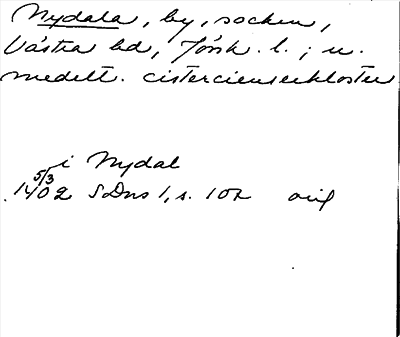 Nydala, by, socken,
Västra hd, Jönk. l.; u.
medelt. cistercienserkloster
i Nydal
5/3
1402 SDns 1, s. 102 orig